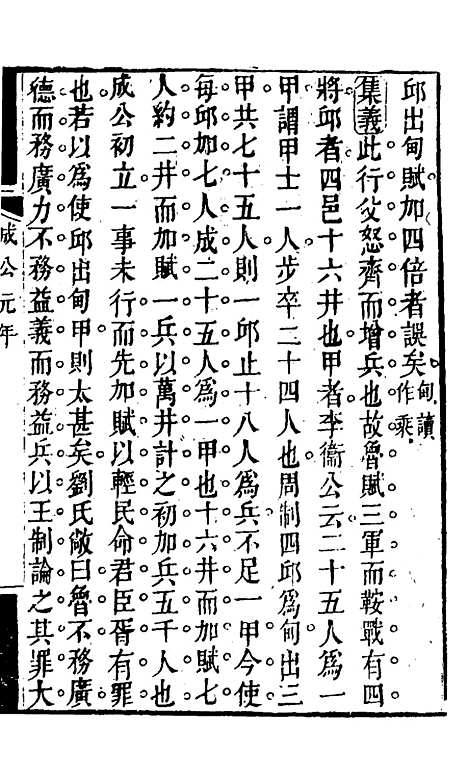 邱出甸賦加四倍者誤矣甸讀作乘
集義此行父怒齊而增兵也故魯賦三軍而鞍戰有四
將邱者四邑十六井也甲者李衞公云二十五人爲一
甲謂甲士一人步卒二十四人也周制四邱爲甸出三
甲共七十五人則一邱止十八人爲兵不足一甲今使
每邱加七人成二十五人爲一甲也十六井而加賦七
人約二井而加賦一兵以萬井計之初加兵五千人也
成公初立一事未行而先加賦以輕民命君臣胥有罪
也若以爲使邱出甸甲則太甚矣劉氏敞曰魯不務廣
德而務廣力不務益義而務益兵以王制論之其罪大
成公元年